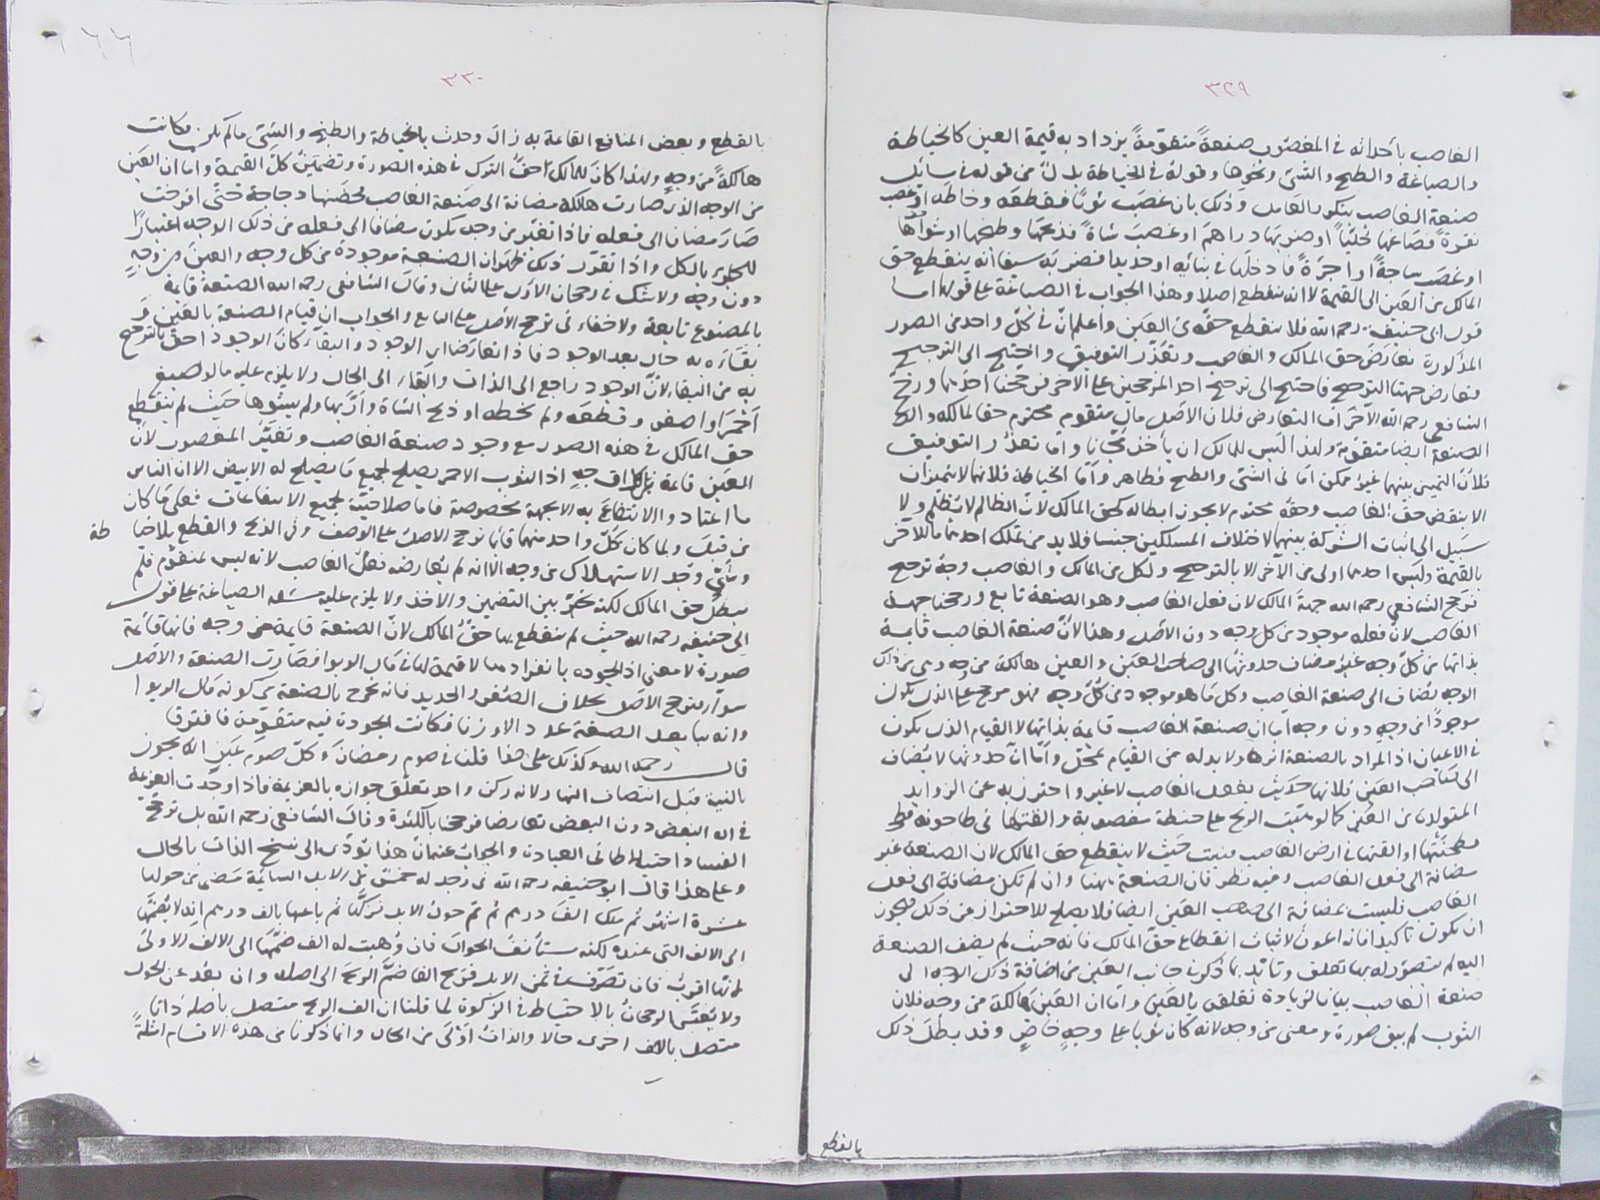 ٣٢٩
الغاصب بأحداثه في المغصوب صنعةً متقوّمةً يزداد به قيمة العين كالخياطة
والصياغة والطبخ والشيّ ونحوها وقوله في الخياطة بدلٌ من قوله في سائل
صنعة الغاصب بتكرير العامل وذلك بان غصَب ثوبًا فقطعه وخاطه او غصب
نقرةً فصَاغها حُليًّا او ضربها دراهم او غصب شاةً فذبحَها وطبخها او شوّاها
او غصَب ساجةً او اجرّةً فادخلها في بنائه او حديدا فضربه سيفا انه ينقطع حق
المالك من العَين الى القيمة لا انه ينقطع اصلا وهذا الجواب في الصياغة على قولهما
قول ابى حنيفة رحمه الله فلا ينقطع حقه في العَين واعلم انّ في كلّ واحد من الصور
المذكورة تعارضَ حق المالك والغاصب وتعذّر التوفيق واحتيج الى الترجيح
وتعارض جهتا الترجيح فاحتيج الى ترجيح احد المرجحين على الآخر فرجحنا احدهما ورجّح
الشافعى رحمه الله الآخر امّا التعارض فلان الاصل مال متقوم محترم حقا لمالكه و
الصنعة ايضا متقوّمة ولهذا ليس للمالك ان ياخذ مجّانا وامّا تعذّر التوفيق
فلانّ التمييز بينهما غير ممكن امّا في الشيّ والطبخ فظاهر وامّا الخياطة فلانها لا تتميز الّا
الا بنقض حق الغاصب وحقّه محترم لا يجوز ابطاله كحق المالك لانّ الظالم لا يُظلم ولا
سَبيل الى اثبات الشركة بينهما لاختلاف المسلكين جنسا فلا بد من تملّك احدهما للآخر
بالقيمة وليَس احدهما اولى من الآخر الا بالترجيح ولكل من المالك والغاصب وجهُ ترجيح
فرجح الشافعي رحمه الله جهةَ المالك لان فعل الغاصب وهو الصنعة تابع ورجحنا جهة
الغاصب لانّ فعله موجود من كل وجه دون الاصل وهذا لانّ صنعة الغاصب قايمة
بذاتها من كلّ وجه غير مضاف حدوثها الى صاحب العَين والعين هالكة من وجه وهى من ذلك
الوجه يضاف الى صنعة الغاصب وكل ما هو موجود من كُلّ وجه فهو مرجح على الذى يكون
موجودًا من وجه دون وجه امّا ان صنعة الغاصب قايمة بذاتها لا القيام الذى يكون
في الاعيان اذ المراد بالصنعة اثرها ولا بد له من القيام بمحلّ وامّا انّ حدوثها لا يُضاف
الى صَاحب العَين فلانها حدثت بفعل الغاصب لا غير واحترز به عن الزوايد
المتولدة من العَين كما لو هبّت الريح على حنطة مغصوبة والقتها في طاحونة
فطحنَتْها او القتها في ارض الغاصب فنبتت حَيث لا ينقطع حق المالك لان الصنعة غير
مضافة الى فعل الغاصب وفيه نظر فان الصنعة ههنا وان لم تكن مضافة الى فعل
الغاصب فليست بمضافة الى صاحب العَين ايضا فلا يصلح للاحتراز من ذلك فيجوز
ان يكون تاكيدا فانه اعون لاثبات انقطاع حقّ المالك فانه حيث لم يضف الصنعة
اليه لم يتصوّر له بها تعلق وتأيّد بما ذكره في جانب العَين من اضافة ذلك الوجه الى
صنعة الغاصب بيانا لزيادة تعلقه بالعَين وامّا ان العَين هالكة من وجه فلان
الثوب لم يبق صورة ومعنى من وجه لانه كان ثوبا على وجهٍ خاصٍّ وقد بطل ذلك
بالقطع
١٦٦
٣٣٠
بالقطع وبعض المنافع القائمة به زال وحدث بالخياطة والطبخ والشيّ ما لم يكن فكانت
هالكةً من وجهٍ ولهذا كان للمالك حقُّ الترك في هذه الصورة وتضمين كلّ القيمة وامّا ان العَين
من الوجه الذى صارت هالكة مضافة الى صَنعة الغاصب حضنها دجاجة حتّى افرخت
صَارَ مضافا الى فعله فاذا تغيّر من وجه يكون مضافا الى فعله من ذلك الوجه اعتبارًا
للجزء بالكل واذا تقرّر ذلك ظهر ان الصنعة موجودة من كل وجه والعين من وجهٍ
دون وجه ولا شك في رجحان الاوّل على الثانى وقال الشافعى رحمه الله الصنعة قايمة
بالمصنوع تابعة ولا خفاء في ترجح الاصل على التابع والجواب ان قيام الصنعة بالعَين و
بقاءه به حال بعد الوجود فاذا تعارضا اى الوجود والبقاء كان الوجود احق بالترجيح
به من البقاء لانّ الوجود راجع الى الذات والبقاء الى الحال ولا يلزم عليه ما لو صبغه
احمَر او اصفر وقطعه ولم يخطه او ذبح الشاة وارّبها ولم يشوها حيث لم ينقطع
حق المالك في هذه الصور مع وجود صنعة الغاصب وتغيّر المغصوب لانّ
العَين قايمة من كل وجه اذ الثوب الاحمر يصلح لجميع ما يصلح له الابيض الا ان الناس
ما اعتادوا الانتفاع به الا بجهة مخصوصة فاما صلاحيّته لجميع الانتفاعات فعلى ما كان
من قبل ولما كان كلّ واحد منهما قائما نرجح الاصل على الوصف وفي الذبح والقطع بلا خياطة
وشيٍّ وجد الاستهلاك من وجه الا انه لم يعارضه فعل الغاصب لانه ليس بمتقوّم فلم
يبطل حق المالك لكنه يخيّر بين التضمين والاخذ ولا يلزم عليه مسئلة الصياغة على قول
ابى حنيفة رحمه الله حيث لم ينقطع بها حقّ المالك لانّ الصنعة قايمة من وجه فانها قائمة
صورة لا معنى اذ الجودة بانفرادها لا قيمة لها في مال الربوا فصَارت الصنعة والاصل
سواء فترجح الاصل بخلاف الصُفر والحديد فانه يخرج بالصنعة من كونه مال الربوا
وانه يباع بعد الصنعة عددا لا وزنا فكانت الجودة فيه متقوّمة فافترقا
قال رحمه الله وكذلك على هذا قلنا في صوم رمضان وكلّ صوم عَين انه يجوز
بالنية قبل انتصاف النهار لانه ركن واحد تعلّق جوازه بالعزيمة فاذا وجدت العزيمة
في البعض دون البعض تعارضا فرجحنا بالكثرة وقال الشافعى رحمه الله بل ترجح
الفساد احتياطا في العبادة والجوابُ عنه انّ هذا يؤدّى الى نسخ الذات بالحال
وعلى هذا قال ابو حنيفه رحمه الله في رجل له خمسٌ من الابل السائمة مَضى من حولها
عشرة اشهُر ثم ملك الفَ درهم ثم تم حول الابل فزكّاها ثم باعها بالف درهم انه لا يضمّها
الى الالف التى عنده لكنه يستأنف الحول فان وُهبت له الف ضمّها الى الالف الاولى
لانها اقربُ فان تصرّف في ثمن الابل فربح الفا ضمّ الربحَ الى اصله وان بعُد عن الحول
ولا يعتبر الرجحانُ بالاحتياط في الزكوة لما قلنا ان الف الربح متصل باصله ذاتا
متصل بالالف اخرى حالا والذاتُ اولى من الحال وانما ذكرنا من هذه الاقسام امثلةً